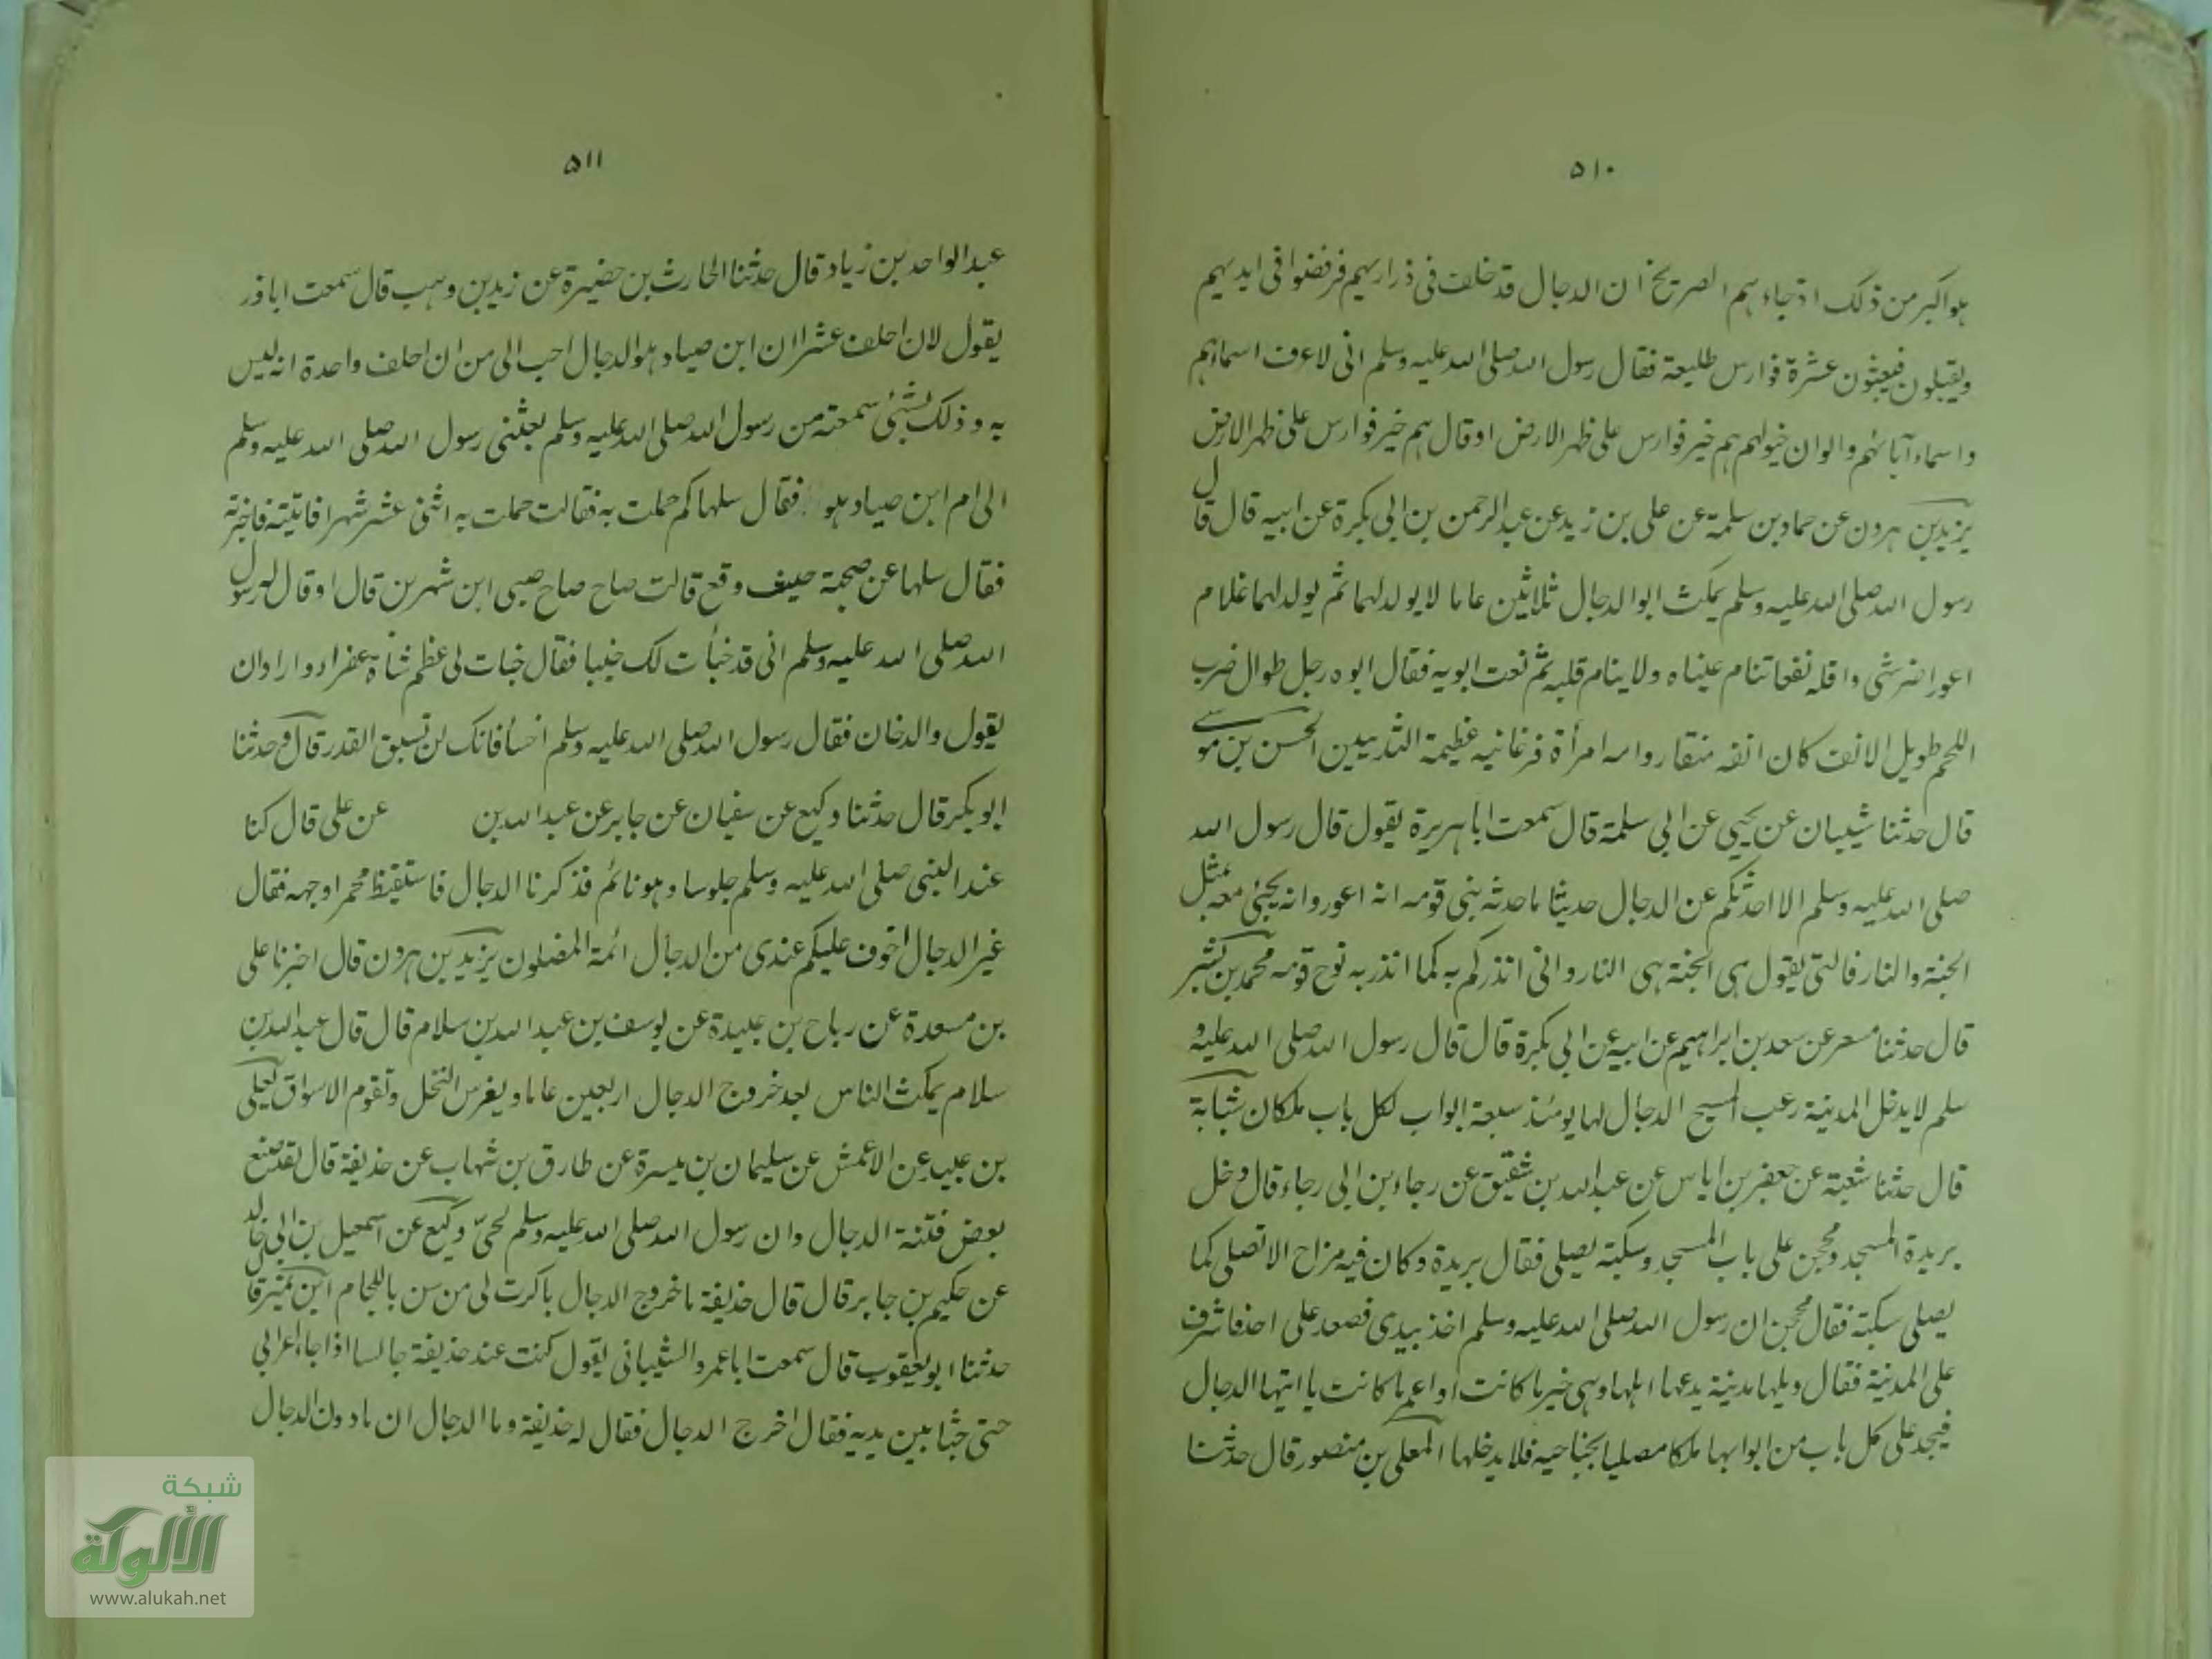 ٥١٠
هو اكبر من ذلك اذ جاءهم الصريخ ان الدجال قد خلف فى ذراريهم فرفضوا فى ايديهم
ويقبلون فيبعثون عشرة فوارس طليعة فقال رسول الله صلى الله عليه وسلم انى لاعرف اسماءهم
واسماء آبائهم والوان خيولهم هم خير فوارس على ظهر الارض او قال هم خير فوارس على ظهر الارض
يزيد بن هرون عن حماد بن سلمة عن على بن زيد عن عبد الرحمن بن ابى بكرة عن ابيه قال قال
رسول الله صلى الله عليه وسلم يمكث ابو الدجال ثلاثين عاما لا يولد لهما ثم يولد لهما غلام
اعور اضر شى واقله نفعا تنام عيناه ولا ينام قلبه ثم نعت ابويه فقال ابوه رجل طوال ضرب
اللحم طويل الانف كان انفه منقار وامه امرأة فرغانية عظيمة الثديين الحسن بن موسى
قال حدثنا شيبان عن يحيى عن ابى سلمة قال سمعت ابا هريرة يقول قال رسول الله
صلى الله عليه وسلم الا احدثكم عن الدجال حديثا ما حدثه بنى قومه انه اعور وانه يجئ معه بمثل
الجنة والنار فالتى يقول هى الجنة هى النار وانى انذركم به كما انذر به نوح قومه محمد بن بشر
قال حدثنا مسعر عن سعد بن ابراهيم عن ابيه عن ابى بكرة قال قال رسول الله صلى الله عليه و
سلم لا يدخل المدينة رعب المسيح الدجال لها يومئذ سبعة ابواب لكل باب ملكان شبابة
قال حدثنا شعبة عن جعفر بن اياس عن عبد الله بن شقيق عن رجاء بن ابى رجاء قال دخل
بريدة المسجد ومحجن على باب المسجد وسكبة يصلى فقال بريدة وكان فيه مزاح الا تصلى كما
يصلى سكبة فقال محجن ان رسول الله صلى الله عليه وسلم اخذ بيدى فصعد على احد فاشرف
على المدينة فقال ويلها مدينة يدعها اهلها وهى خير ما كانت او اعمر ما كانت ياتيها الدجال
فيجد على كل باب من ابوابها ملكا مصليا بجناحيه فلا يدخلها المعلى بن منصور قال حدثنا
٥١١
عبد الواحد بن زياد قال حدثنا الحارث بن حضيرة عن زيد بن وهب قال سمعت ابا ذر
يقول لان احلف عشرا ان ابن صياد هو الدجال احب الى من ان احلف واحدة انه ليس
به وذلك لشئ سمعته من رسول الله صلى الله عليه وسلم بعثنى رسول الله صلى الله عليه وسلم
الى ام ابن صياد هو فقال سلها كم حملت به فقالت حملت به اثنى عشر شهرا فاتيته فاخبرته
فقال سلها عن صيحة حيث وقع قالت صاح صاح صبى ابن شهرين قال او قال له رسول
الله صلى الله عليه وسلم انى قد خبأت لك خبيا فقال خبات لى عظم شأة عفراء واراد ان
يقول والدخان فقال رسول الله صلى الله عليه وسلم اخسأ فانك لن تسبق القدر قال وحدثنا
ابو بكر قال حدثنا وكيع عن سفيان عن جابر عن عبد الله بن عن على قال كنا
عند النبى صلى الله عليه وسلم جلوسا وهو نائم فذكرنا الدجال فاستيقظ محمرا وجهه فقال
غير الدجال اخوف عليكم عندى من الدجال ائمة المضلون يزيد بن هرون قال اخبرنا على
بن مسعدة عن رباح بن عبيدة عن يوسف بن عبد الله بن سلام قال قال عبد الله بن
سلام يمكث الناس بعد خروج الدجال اربعين عاما ويغرس النخل وتقوم الاسواق يعلى
بن عبيد عن الاعمش عن سليمان بن ميسرة عن طارق بن شهاب عن حذيفة قال لقد صنع
بعض فتنة الدجال وان رسول الله صلى الله عليه وسلم لحىّ وكيع عن اسمعيل بن ابى خالد
عن حكيم بن جابر قال قال حذيفة ما خروج الدجال باكرث لى من سن باللجام ابن نمير قال
حدثنا ابو يعقوب قال سمعت ابا عمرو الشيبانى يقول كنت عند حذيفة جالسا اذا جاء اعرابى
حتى جثا بين يديه فقال اخرج الدجال فقال له حذيفة وما الدجال ان ما دون الدجال
شبكة
الألوكة
www.alukah.net